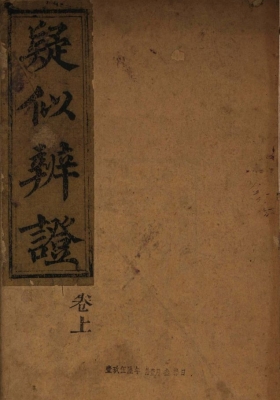 疑似辨證
卷上